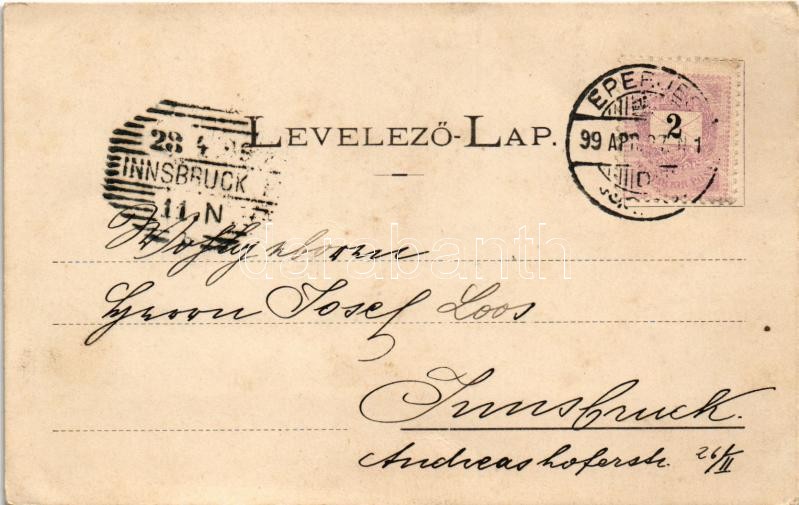 LEVELEZŐ-LAP.
EPERJES
99 APR. 27. N 1
2
28 4 99
INNSBRUCK
11. N
Wohlgeboren
Herrn Josef Loos
Innsbruck.
Andreashoferstr. 26/II
darabanth